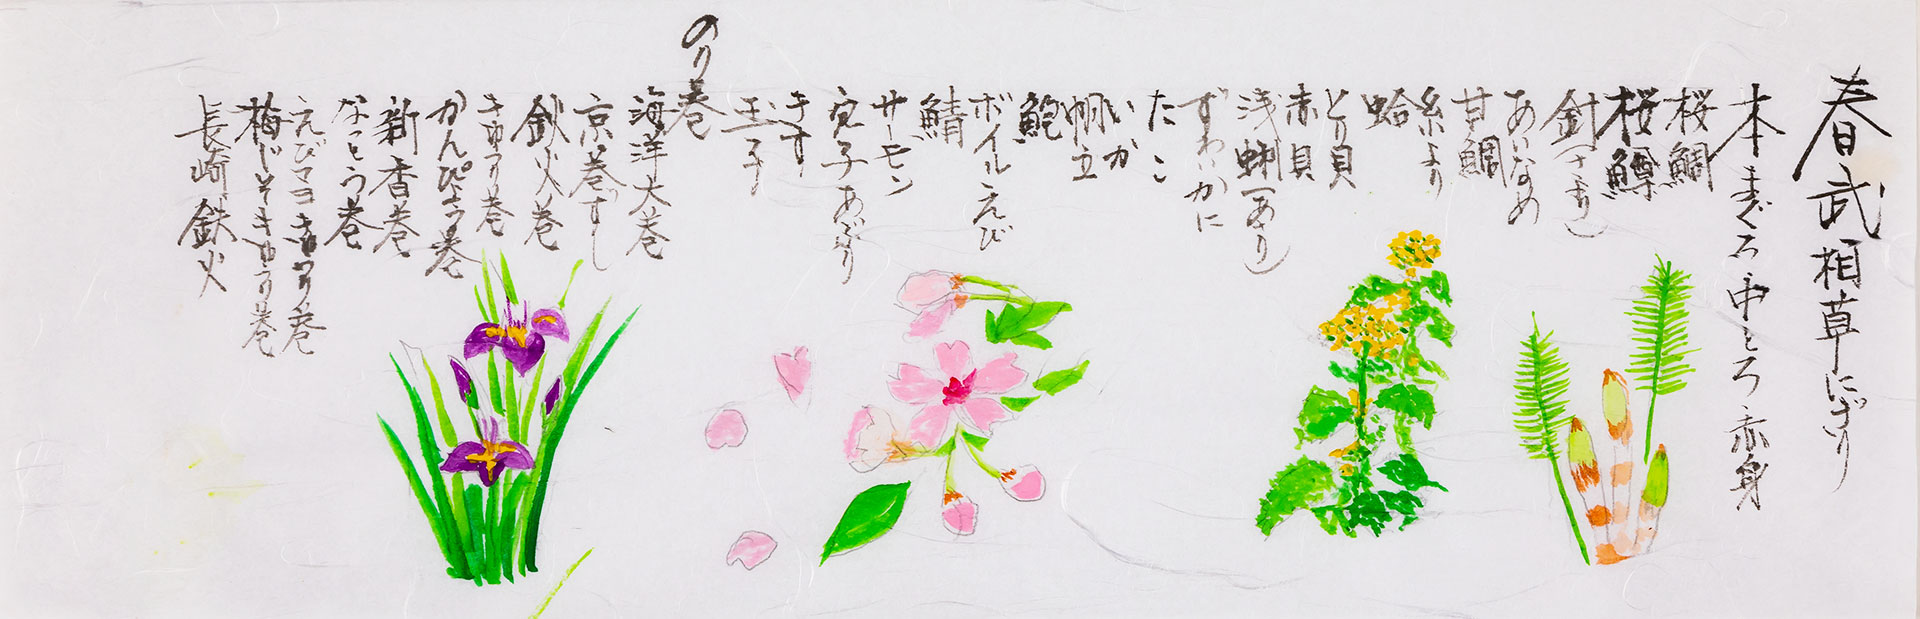 春武相草にぎり
本まぐろ中とろ赤身
桜鯛
桜鱒
針(さより)
あいなめ
甘鯛
糸より
蛤
とり貝
赤貝
浅蜊(あさり)
ずわいがに
たこ
いか
帆立
鮑
ボイルえび
鯖
サーモン
穴子あぶり
きす
玉子
のり巻
海洋大巻
京巻すし
鉄火巻
きゅうり巻
かんぴょう巻
新香巻
なっとう巻
えびマヨきゅうり巻
梅じそきゅうり巻
長崎鉄火